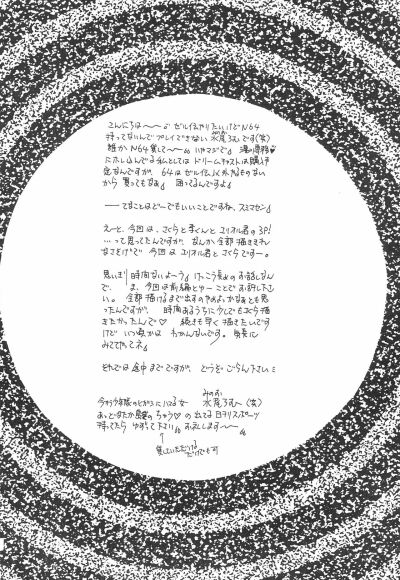 こんにちは〜〜♪ ゼル伝やりたいけどN64
持ってないんでプレイできない 水尾ろむです(笑)
誰かN64貸して〜〜 いやマジで♪
にホレ込んでる私としては ドリームキャストは購入予
定なんですが、64はゼル伝以外のものない
から 買ってもなぁ♪ 困ってるんですよ♪
——てなことはどーでもいいことですね、スミマセン♪
えーと、今回は、さくらと李くんとユリオル君の3P!
…って思ってたんですが、なんか全部描ききれ
なさそげで 今回は ユリオル君とさくらですー。
思いまっ 時間ないよーう♪ けっこう長めのお話なん
で、 ま、今回は前編とゆーことでお許し下さ
い。全部描けるまで出すのやめよっかなぁとも思
ったんですが、時間あるうちに少しでもさくら描
きたかったんで♡ 続きも早く描きたいです
けど いつ頃かは わかんないです。気長に
みててやってネ♪
それでは途中までですが、どうぞごらん下さいミ
みのお
水尾ろむ〜(笑)
ちゅう♡の出てる日刊スポーツ
持ってたら ゆずって下さい お礼します〜〜
↑
貸していただける
だけでも可